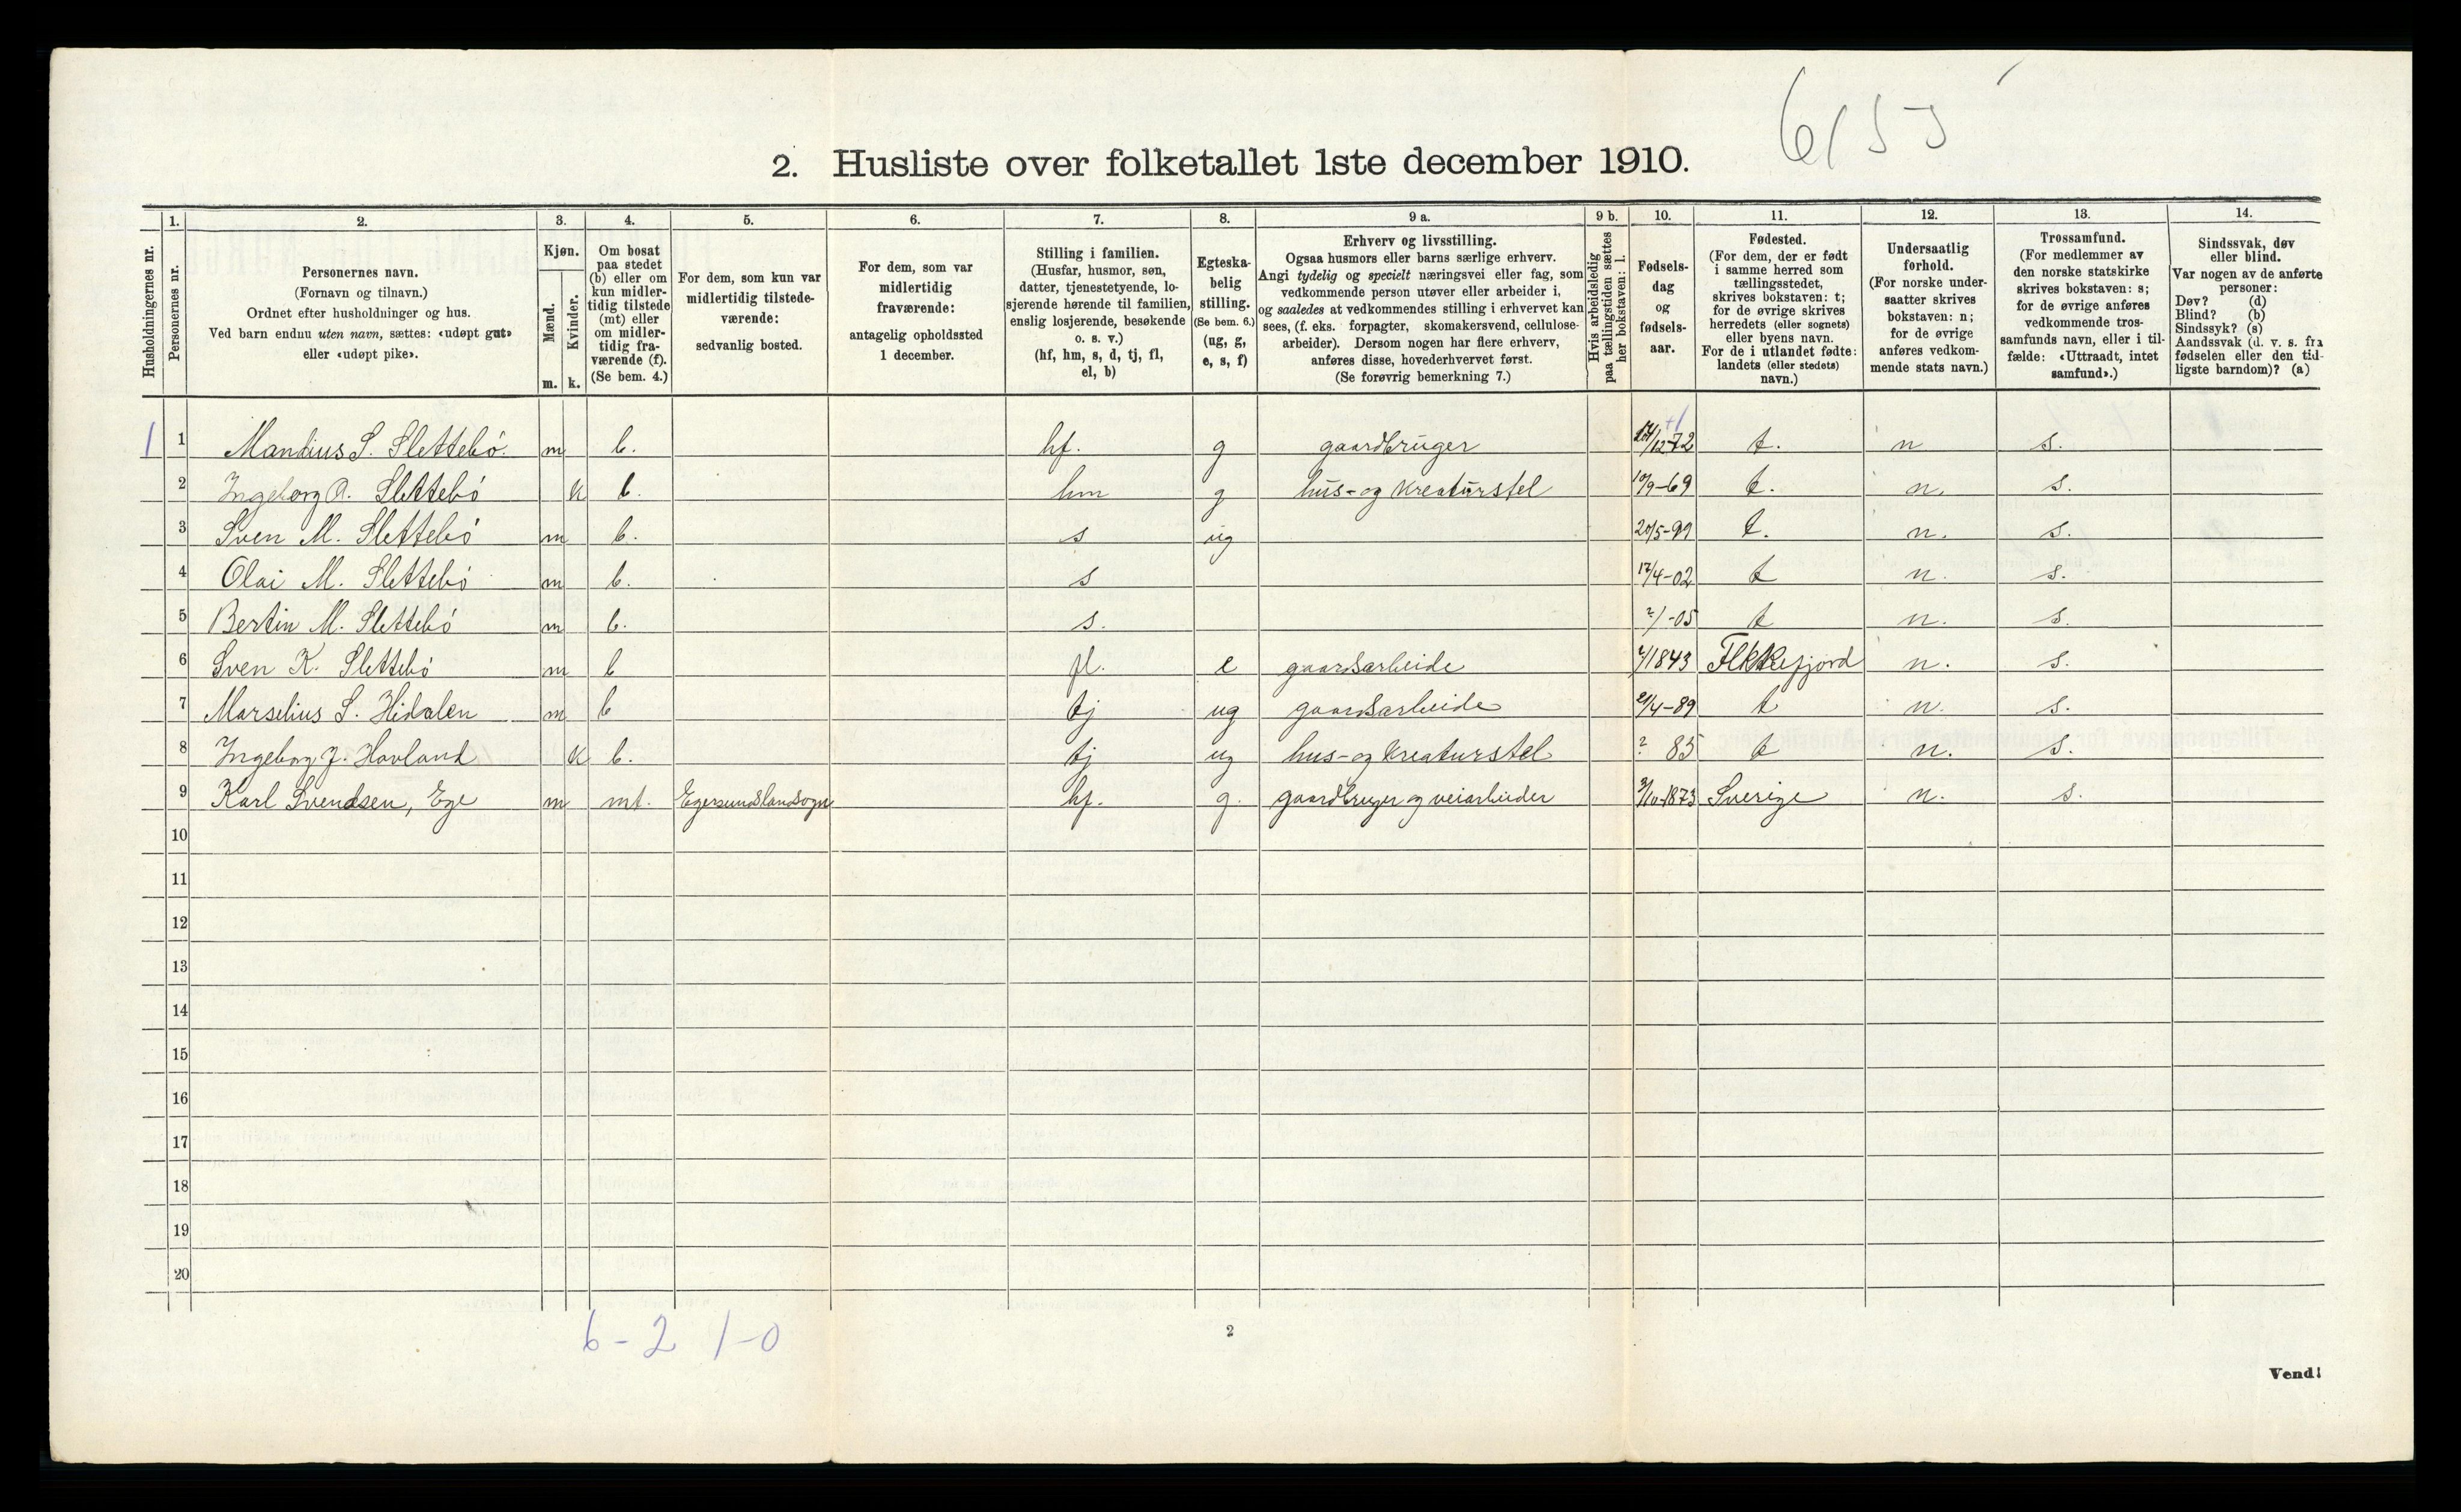 6/55
2. Husliste over folketallet 1ste december 1910.
Husholdningernes nr.
1.
Personernes nr.
2.
Personernes navn.
(Fornavn og tilnavn.)
Ordnet efter husholdninger og hus.
Ved barn endnu uten navn, sættes: «udøpt gut»
eller «udøpt pike».
3.
Kjøn.
Mænd.
Kvinder.
m. k.
4.
Om bosat
paa stedet
(b) eller om
kun midler-
tidig tilstede
(mt) eller
om midler-
tidig fra-
værende (f).
(Se bem. 4.)
5.
For dem, som kun var
midlertidig tilstede-
værende:
sedvanlig bosted.
6.
For dem, som var
midlertidig
fraværende:
antagelig opholdssted
1 december.
7.
Stilling i familien.
(Husfar, husmor, søn,
datter, tjenestetyende, lo-
sjerende hørende til familien,
enslig losjerende, besøkende
o. s. v.)
(hf, hm, s, d, tj, fl,
el, b)
8.
Egteska-
belig
stilling.
(Se bem. 6.)
(ug, g,
e, s, f)
9 a.
Erhverv og livsstilling.
Ogsaa husmors eller barns særlige erhverv.
Angi tydelig og specielt næringsvei eller fag, som
vedkommende person utøver eller arbeider i,
og saaledes at vedkommendes stilling i erhvervet kan
sees, (f. eks. forpagter, skomakersvend, cellulose-
arbeider). Dersom nogen har flere erhverv,
anføres disse, hovederhvervet først.
(Se forøvrig bemerkning 7.)
9 b.
Hvis arbeidsledig
paa tællingstiden sættes
her bokstaven: l.
10.
Fødsels-
dag
og
fødsels-
aar.
11.
Fødested.
(For dem, der er født
i samme herred som
tællingsstedet,
skrives bokstaven: t;
for de øvrige skrives
herredets (eller sognets)
eller byens navn.
For de i utlandet fødte:
landets (eller stedets)
navn.)
12.
Undersaatlig
forhold.
(For norske under-
saatter skrives
bokstaven: n;
for de øvrige
anføres vedkom-
mende stats navn.)
13.
Trossamfund.
(For medlemmer av
den norske statskirke
skrives bokstaven: s;
for de øvrige anføres
vedkommende tros-
samfunds navn, eller i til-
fælde: «Uttraadt, intet
samfund».)
14.
Sindssvak, døv
eller blind.
Var nogen av de anførte
personer:
Døv? (d)
Blind? (b)
Sindssyk? (s)
Aandssvak (d. v. s. fra
fødselen eller den tid-
ligste barndom)? (a)
+1
1 1 Mandius S. Slettebø. m b. hf. g gaardbruger /12-72 t. n s.
2 Ingeborg O. Slettebø k b. hm g hus- og kreaturstel 10/9-69 t. n. s.
3 Sven M. Slettebø m b. s ug 20/5-99 t. n. s.
4 Olai M. Slettebø m b. s 17/4-02 t n. s.
5 Bertin M. Slettebø m b. s. 2/1-05 t n. s.
6 Sven K. Slettebø m b fl. e gaardsarbeide 1843 Flekkefjord n. s.
7 Marselius S. Hidalen m b tj ug gaardsarbeide 21/4-89 t n. s.
8 Ingeborg J. Hovland k b. tj ug hus- og kreaturstel ? 85 t n. s.
9 Karl Svendsen, Ege m mt. Egersundslandsogn hf. g. gaardbruger og veiarbeider 3/10-1873 Sverige n. s.
10
11
12
13
14
15
16
17
18
19
20
6-2 1-0
2
Vend!